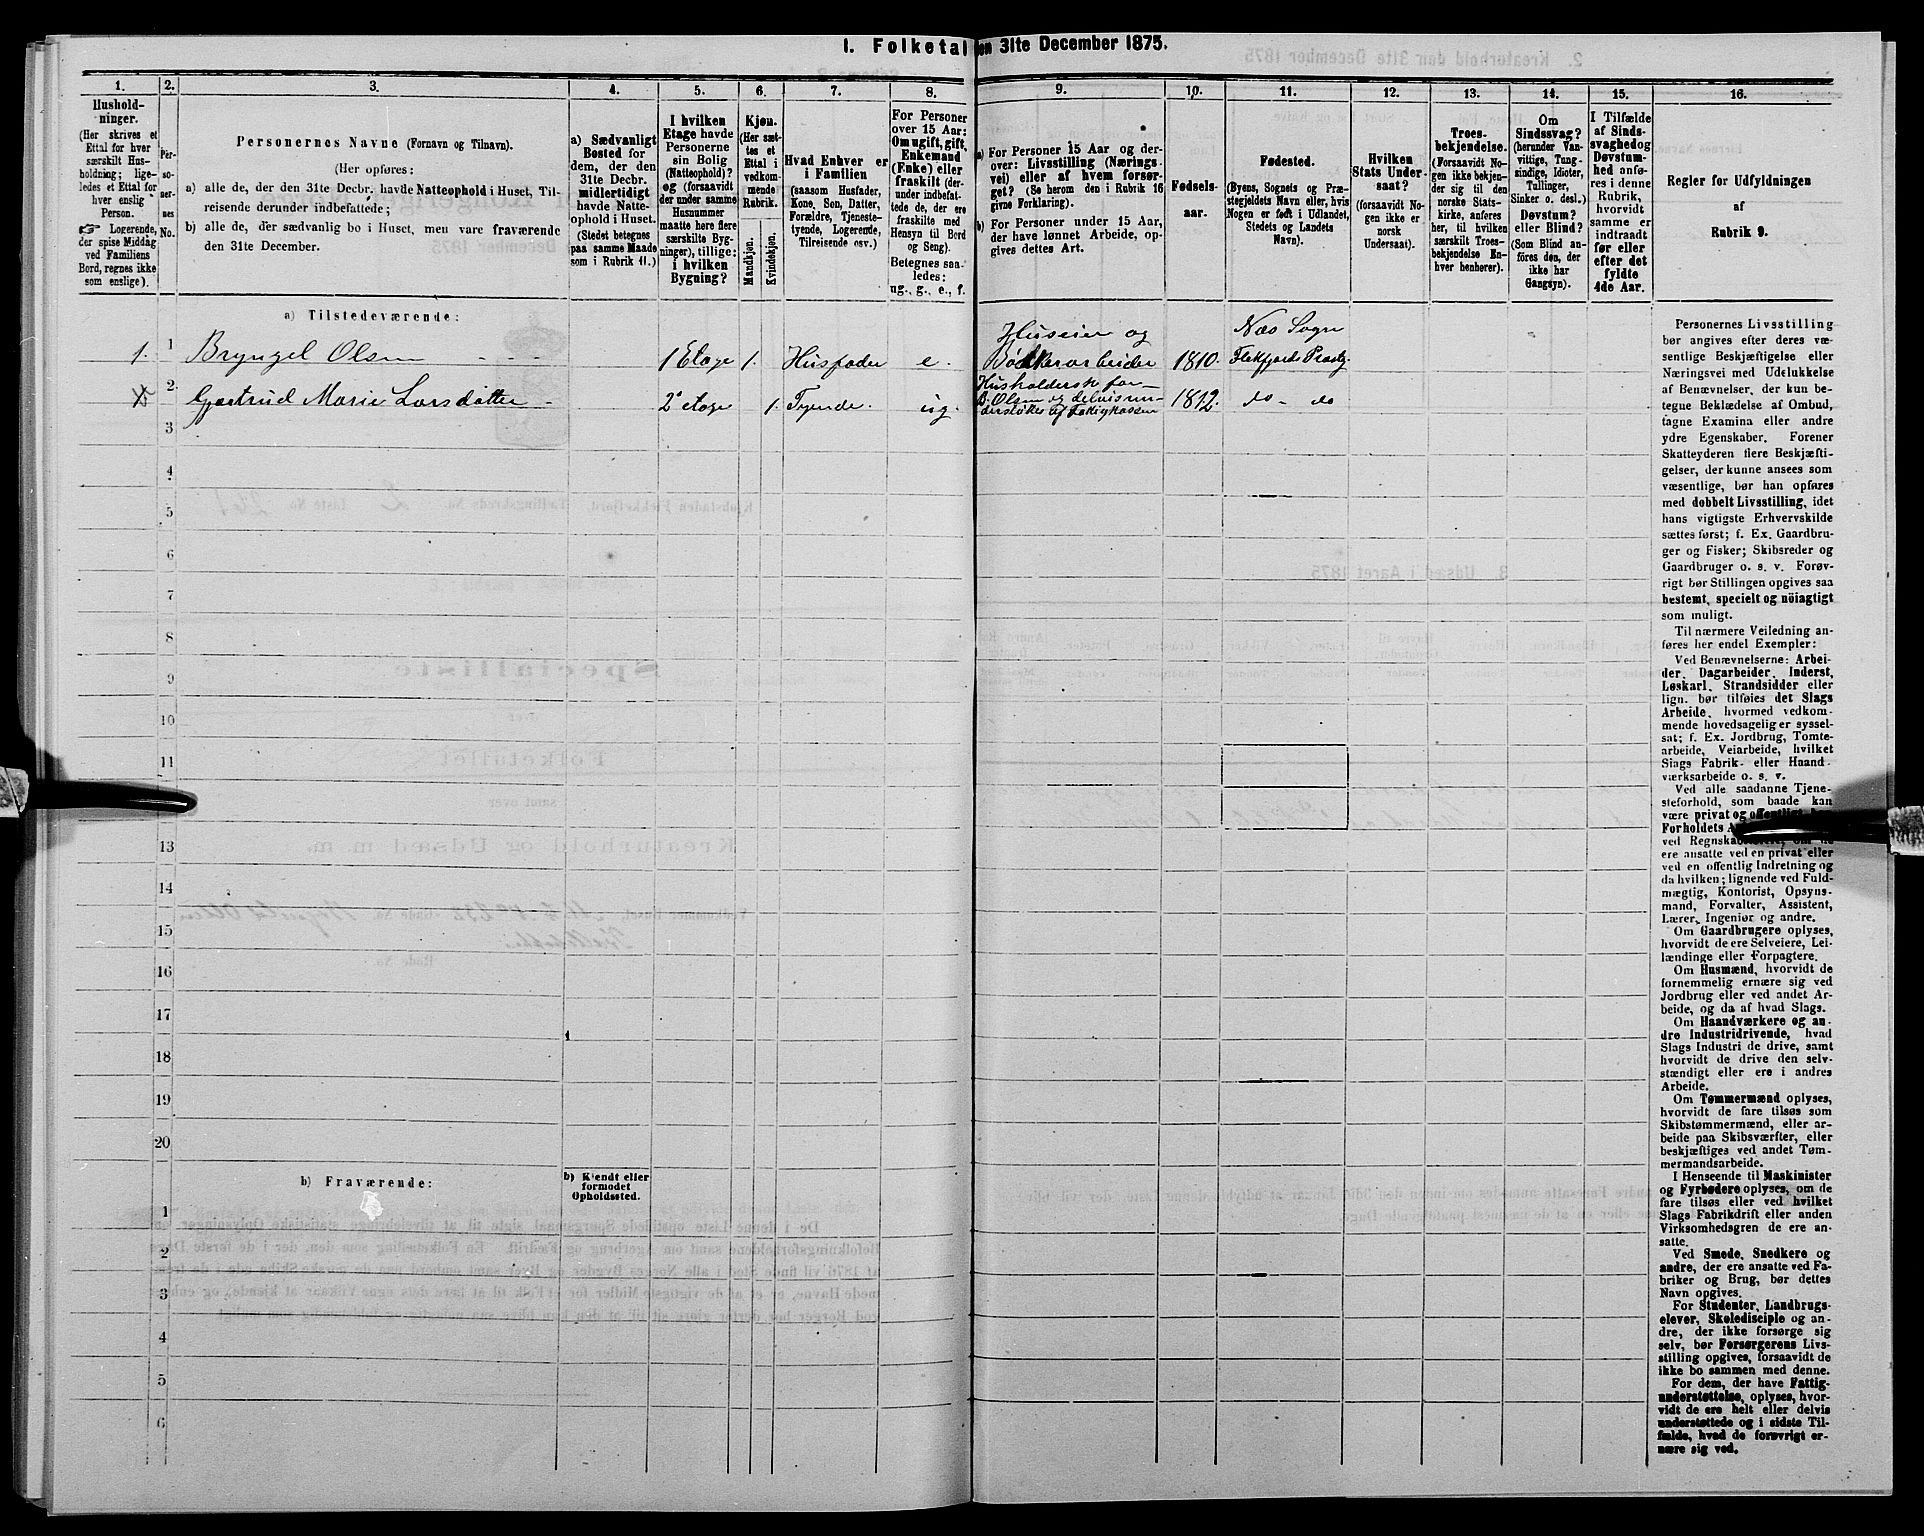 1. Folketal den 31te December 1875.
1.
Hushold-
ninger.
(Her skrives et
Ettal for hver
særskilt Hus-
holdning; lige-
ledes et Ettal for
hver enslig
Person.
☞ Logerende,
der spise Middag
ved Familiens
Bord, regnes ikke
som enslige).
2.
Per-
so-
ner-
nes
No.
3.
Personernes Navne (Fornavn og Tilnavn).
(Her opføres:
a) alle de, der den 31te Decbr. havde Natteophold i Huset, Til-
reisende derunder indbefattede;
b) alle de, der sædvanlig bo i Huset, men vare fraværende
den 31te December.
4.
a) Sædvanligt
Bosted for
dem, der den
31te Decbr.
midlertidigt
havde Natte-
ophold i Huset.
(Stedet betegnes
paa samme Maade
som i Rubrik 11.)
5.
I hvilken
Etage havde
Personerne
sin Bolig
(Natteophold)?
og (forsaavidt
der under samme
Husnummer
maatte høre flere
særskilte Byg-
ninger), tillige:
i hvilken
Bygning?
6.
Kjøn.
(Her sæt-
tes et
Ettal i
vedkom-
mende
Rubrik.
Mandkjøn.
Kvindekjøn.
7.
Hvad Enhver er
i Familien
(saasom Husfader,
Kone, Søn, Datter,
Forældre, Tjeneste-
tyende, Logerende,
Tilreisende osv.)
8.
For Personer
over 15 Aar:
Om ugift, gift,
Enkemand
(Enke) eller
fraskilt (der-
under indbefat-
tede de, der ere
fraskilte med
Hensyn til Bord
og Seng).
Betegnes saa-
ledes:
ug., g., e., f.
9.
a) For Personer 15 Aar og der-
over: Livsstilling (Nærings-
vei) eller af hvem forsør-
get? (Se herom den i Rubrik 16
givne Forklaring).
b) For Personer under 15 Aar,
der have lønnet Arbeide, op-
gives dettes Art.
10.
Fødsels-
aar.
11.
Fødested.
(Byens, Sognets og Præ-
stegjeldets Navn eller, hvis
Nogen er født i Udlandet,
Stedets og Landets
Navn).
12.
Hvilken
Stats Under-
saat?
(forsaavidt No-
gen ikke er
norsk
Undersaat).
13.
Troes-
bekjendelse.
(Forsaavidt No-
gen ikke bekjen-
der sig til den
norske Stats-
kirke, anføres
her, til hvilken
særskilt Troes-
bekjendelse En-
hver henhører).
14.
Om
Sindssvag?
(herunder Van-
vittige, Tung-
sindige, Idioter,
Tullinger,
Sinker o. desl.)
Døvstum?
eller Blind?
(Som Blind an-
føres den, der
ikke har
Gangsyn).
15.
I Tilfælde
af Sinds-
svaghed og
Døvstum-
hed anfø-
res i denne
Rubrik,
hvorvidt
samme er
indtraadt
før eller
efter det
fyldte
4de Aar.
16.
Regler for Udfyldningen
af
Rubrik 9.
a) Tilstedeværende:
1. 1 Bryngel Olsen 1 Etage 1. Husfader e. Huseier og Bødkerarbeider 1810. Næs Sogn Flekfjords Præstg.
2 Gjertrud Marie Larsdatter 2den etage 1. Tyende. ug. Husholderske for B. Olsen og delvis un- derstøttes af Fattigkassen 1812. do - do
3
4
5
6
7
8
9
10
11
13
14
15
16
17
18
19
20
b) Fraværende:
b) Kjendt eller
formodet
Opholdssted.
1
2
3
4
5
6
Personernes Livsstilling
bør angives efter deres væ-
sentlige Beskjæftigelse eller
Næringsvei med Udelukkelse
af Benævnelser, der kun be-
tegne Beklædelse af Ombud,
tagne Examina eller andre
ydre Egenskaber. Forener
Skatteyderen flere Beskjæfti-
gelser, der kunne ansees som
væsentlige, bør han opføres
med dobbelt Livsstilling, idet
hans vigtigste Erhvervskilde
sættes først; f. Ex. Gaardbru-
ger og Fisker; Skibsreder og
Gaardbruger o. s. v. Forøv-
rigt bør Stillingen opgives saa
bestemt, specielt og nöiagtigt
som muligt.
Til nærmere Veiledning an-
føres her endel Exempler:
Ved Benævnelserne: Arbei-
der, Dagarbeider, Inderst,
Løskarl, Strandsidder eller
lign. bør tilføies det Slags
Arbeide, hvormed vedkom-
mende hovedsagelig er syssel-
sat; f. Ex. Jordbrug, Tomte-
arbeide, Veiarbeide, hvilket
Slags Fabrik- eller Haand-
værksarbeide o. s. v.
Ved alle saadanne Tjene-
steforhold, som baade kan
være privat og offentligt,
Forholdets
ved
ere ansatte ved en privat eller
ved en offentlig Indretning og
da hvilken; lignende ved Fuld-
mægtig, Kontorist, Opsyns-
mand, Forvalter, Assistent,
Lærer, Ingeniør og andre.
Om Gaardbrugere oplyses,
hvorvidt de ere Selveiere, Lei-
lændinge eller Forpagtere.
Om Husmænd, hvorvidt de
fornemmelig ernære sig ved
Jordbrug eller ved andet Ar-
beide, og da af hvad Slags.
Om Haandværkere og an-
dre Industridrivende, hvad
Slags Industri de drive, samt
hvorvidt de drive den selv-
stændigt eller ere i andres
Arbeide.
Om Tømmermænd oplyses,
hvorvidt de fare tilsøs som
Skibstømmermænd, eller ar-
beide paa Skibsværfter, eller
beskjæftiges ved andet Tøm-
mermandsarbeide.
I Henseende til Maskinister
og Fyrbødere oplyses, om de
fare tilsøs eller ved hvilket
Slags Fabrikdrift eller anden
Virksomhedsgren de ere an-
satte.
Ved Smede, Snedkere og
andre, der ere ansatte ved Fa-
briker og Brug, bør dettes
Navn opgives.
For Studenter, Landbrugs-
elever, Skoledisciple og an-
dre, der ikke forsørge sig
selv, bør Forsørgerens Livs-
stilling opgives, forsaavidt de
ikke bo sammen med denne.
For dem, der have Fattig-
understøttelse, oplyses, hvor-
vidt de ere helt eller delvis
understøttede og i sidste Til-
fælde, hvad de forøvrigt er-
nære sig ved.